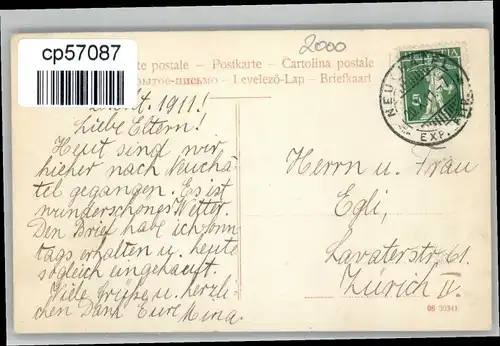 cp57087
2000
te postale – Postkarte – Cartolina postale
рытое-письмо – Levelezö-Lap – Briefkaart
1911!
Liebe Eltern!
Heut sind wir
hieher nach Neuchâ-
tel gegangen. Es ist
wunderschönes Wetter.
Den Brief habe ich Sonn-
tags erhalten u. heute
sogleich
Viele Grüsse u. herzli-
chen Dank Eure Mina.
HELVETIA
5
NEUCH
EXP.
Herrn u. Frau
Egli,
Lavaterstr. 61.
Zürich II.
08 30341